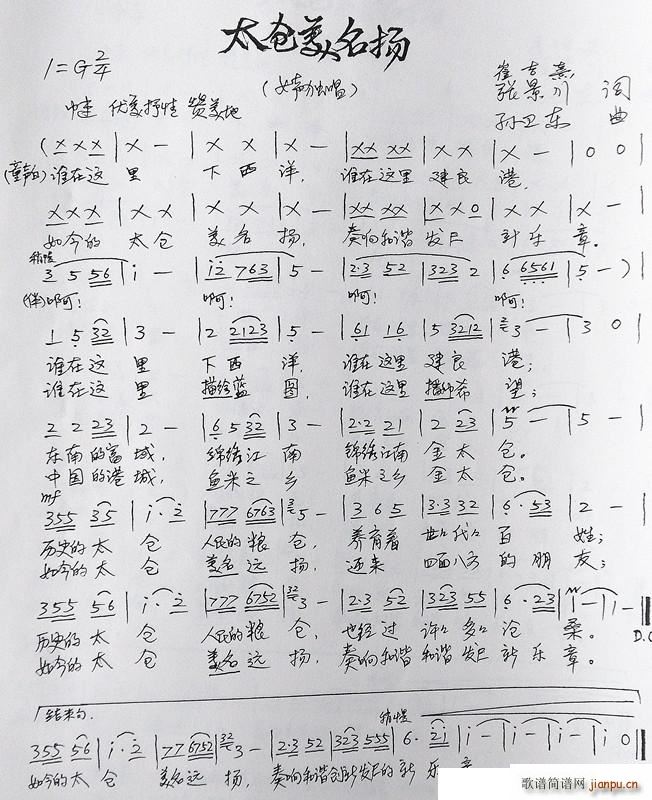 太仓美名扬
1=G 2/4
(女声独唱)
中速 优美抒情 赞美地
张景川 词
孙卫东 曲
(X X X | X - | X X X | X - | XX XX | X X | X - | 0 0 |
(童声白) 谁在这里 下西洋, 谁在这里建良港,
X X X | X X | X X X | X - | XX XX | X X 0 | X X | X - |
如今的太仓美名扬, 奏响和谐发展新乐章。
稍慢
3 5 56 | i - | i2 763 | 5 - | 2·3 52 | 323 2 | 6 6561 | 5 - )
(伴)啊! 啊! 啊! 啊!
1 5 32 | 3 - | 2 2123 | 5 - | 61 16 | 5 3212 | 3 - | 3 0 |
谁在这里下西洋, 谁在这里建良港;
谁在这里描绘蓝图, 谁在这里播种希望;
2 2 23 | 2 - | 6 5 32 | 3 - | 2·2 21 | 2 23 | 5 - | 5 - |
东南的富城, 锦绣江南 锦绣江南金太仓。
中国的港城, 鱼米之乡 鱼米之乡金太仓。
mf
355 35 | i·2 | 777 6763 | 5 - | 3 6 5 | 3·3 32 | 6·53 | 2 - |
历史的太仓 人民的粮仓, 养育着世世代代百姓;
如今的太仓 美名远扬, 迎来四面八方的朋友;
355 56 | i·2 | 777 6752 | 3 - | 2·3 52 | 323 55 | 6·23 | 1 - | 1 - ‖
D.C
历史的太仓 人民的粮仓, 也经过许许多多沧桑。
如今的太仓 美名远扬, 奏响和谐和谐发展新乐章。
结束句.
稍慢
355 56 | i·2 | 77 6752 | 3 - | 2·3 52 | 323 555 | 6·2i | i - | i - | i - | i - | i 0 ‖
如今的太仓 美名远扬, 奏响和谐创新发展的新乐章
歌谱简谱网
jianpu.cn